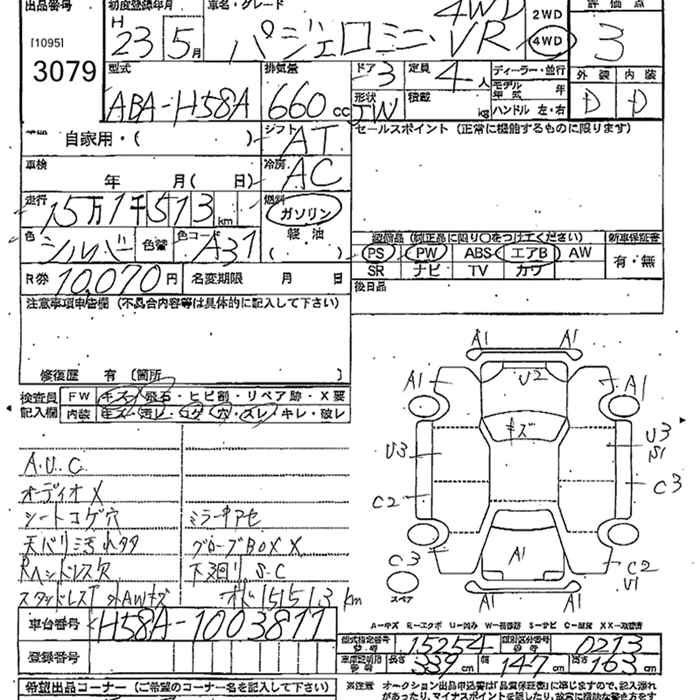 出品番号 初度登録年月 車名・グレード 評価点
[1095] H 23 5月 パジェロミニ 4WD VR 2WD 4WD 3
3079
型式 排気量 ドア 3 定員 4人 ディーラー・並行 外装 内装
ABA-H58A 660cc 形状 JW 積載 kg モデル年式 年 D D
ハンドル 左・右
自家用・( ) シフト AT セールスポイント (正常に機能するものに限ります)
車検 年 月( 日) 冷房 AC
走行 15万1千513km 燃料 ガソリン
色 シルバー 色替 色コード A31 軽油 ( )
装備品 (純正品に限り○をつけてください) 新車保証書
PS PW ABS エアB AW 有・無
SR ナビ TV カワ
R券 10,070円 名変期限 月 日 後日品
注意事項申告欄 (不具合内容等は具体的に記入して下さい)
修復歴 有 〔箇所 〕
検査員記入欄 FW キズ・飛石・ヒビ割・リペア跡・X要
内装 キズ・汚レ・コゲ・穴・スレ・キレ・破レ
A.U.C
オーディオX
シートコゲ穴 ミラーキアセ
天バリ汚れタタ グローブBOX X
Rヘッドレス欠 下廻り S.C
スタッドレスT 外AWキズ オド151513km
A1 A1
A1 U2 A1
キズ
U3 U3 S1
C2 C3
C3 A1 C2 U1
スペア
A-キズ E-エクボ U-凹み W-補修跡 S-サビ C-腐食 XX-取替済
車台番号 H58A-1003811
型式指定番号 15254 類別区分番号 0213
登録番号
長さ 339cm 幅 147cm 高さ 163cm
希望出品コーナー (ご希望のコーナー名を記入して下さい)
※注意 オークション出品申込書は「品質保証書」に準じますので、記入漏れ